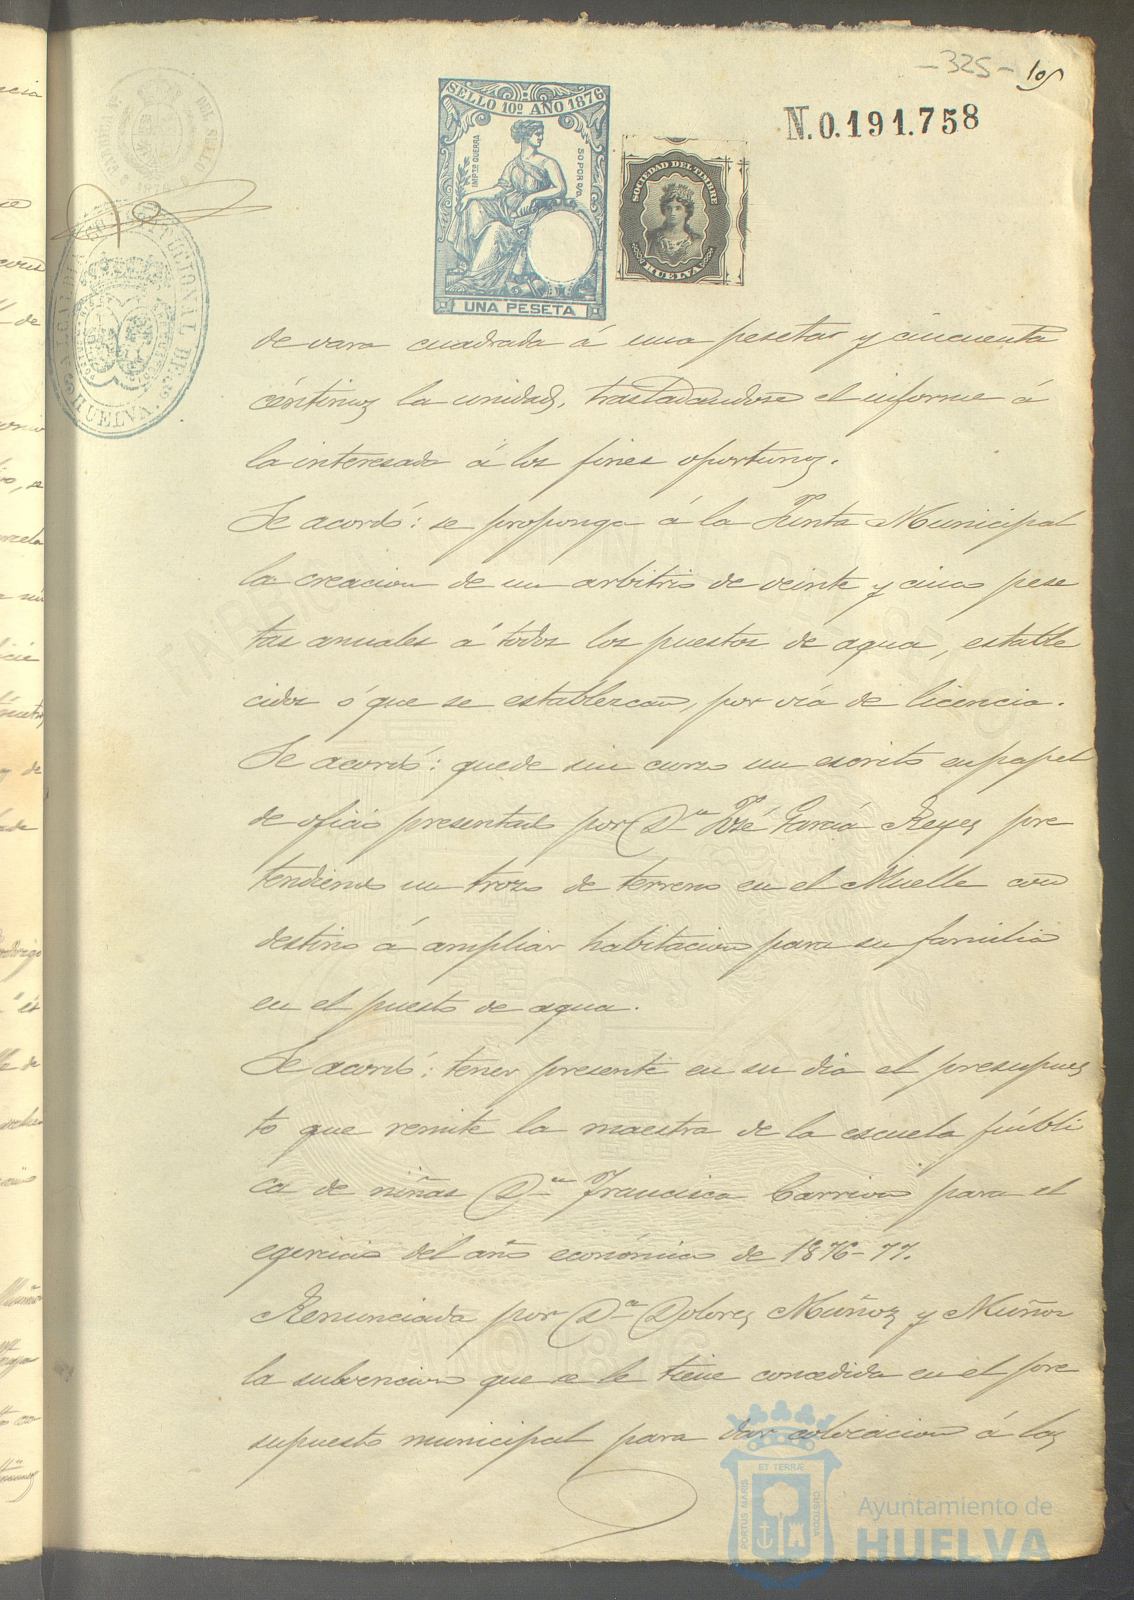 - 325 - 105
N.0.191.758
SELLO 10º AÑO 1876
IMPTO GUERRA
50 POR %
UNA PESETA
SOCIEDAD DEL TIMBRE
HUELVA
ALCALDIA CONSTITUCIONAL DE
HUELVA
de vara cuadrada á una pesetas y cincuenta
céntimos la unidad, trasladandose el informe á
la interesada á los fines oportunos.
Se acordó: se proponga á la Junta Municipal
la creacion de un arbitrio de veinte y cinco pese
tas anuales á todos los puestos de agua, estable
cidos ó que se establezcan, por vía de licencia.
Se acordó: quede sin curso un escrito en papel
de oficio presentado por Dn José García Reyes pre
tendiendo un trozo de terreno en el Muelle con
destino á ampliar habitacion para su familia
en el puesto de agua.
Se acordó: tener presente en su dia el presupues
to que remite la maestra de la escuela públi
ca de niñas Dña Francisca Carrion para el
egercicio del año económico de 1876-77.
Renunciada por Dña Dolores Muñoz y Muñoz
la subvencion que se le tiene concedida en el pre
supuesto municipal para dar colocacion á las
PORTUS MARIS
ET TERRÆ
CUSTODIA
Ayuntamiento de
HUELVA